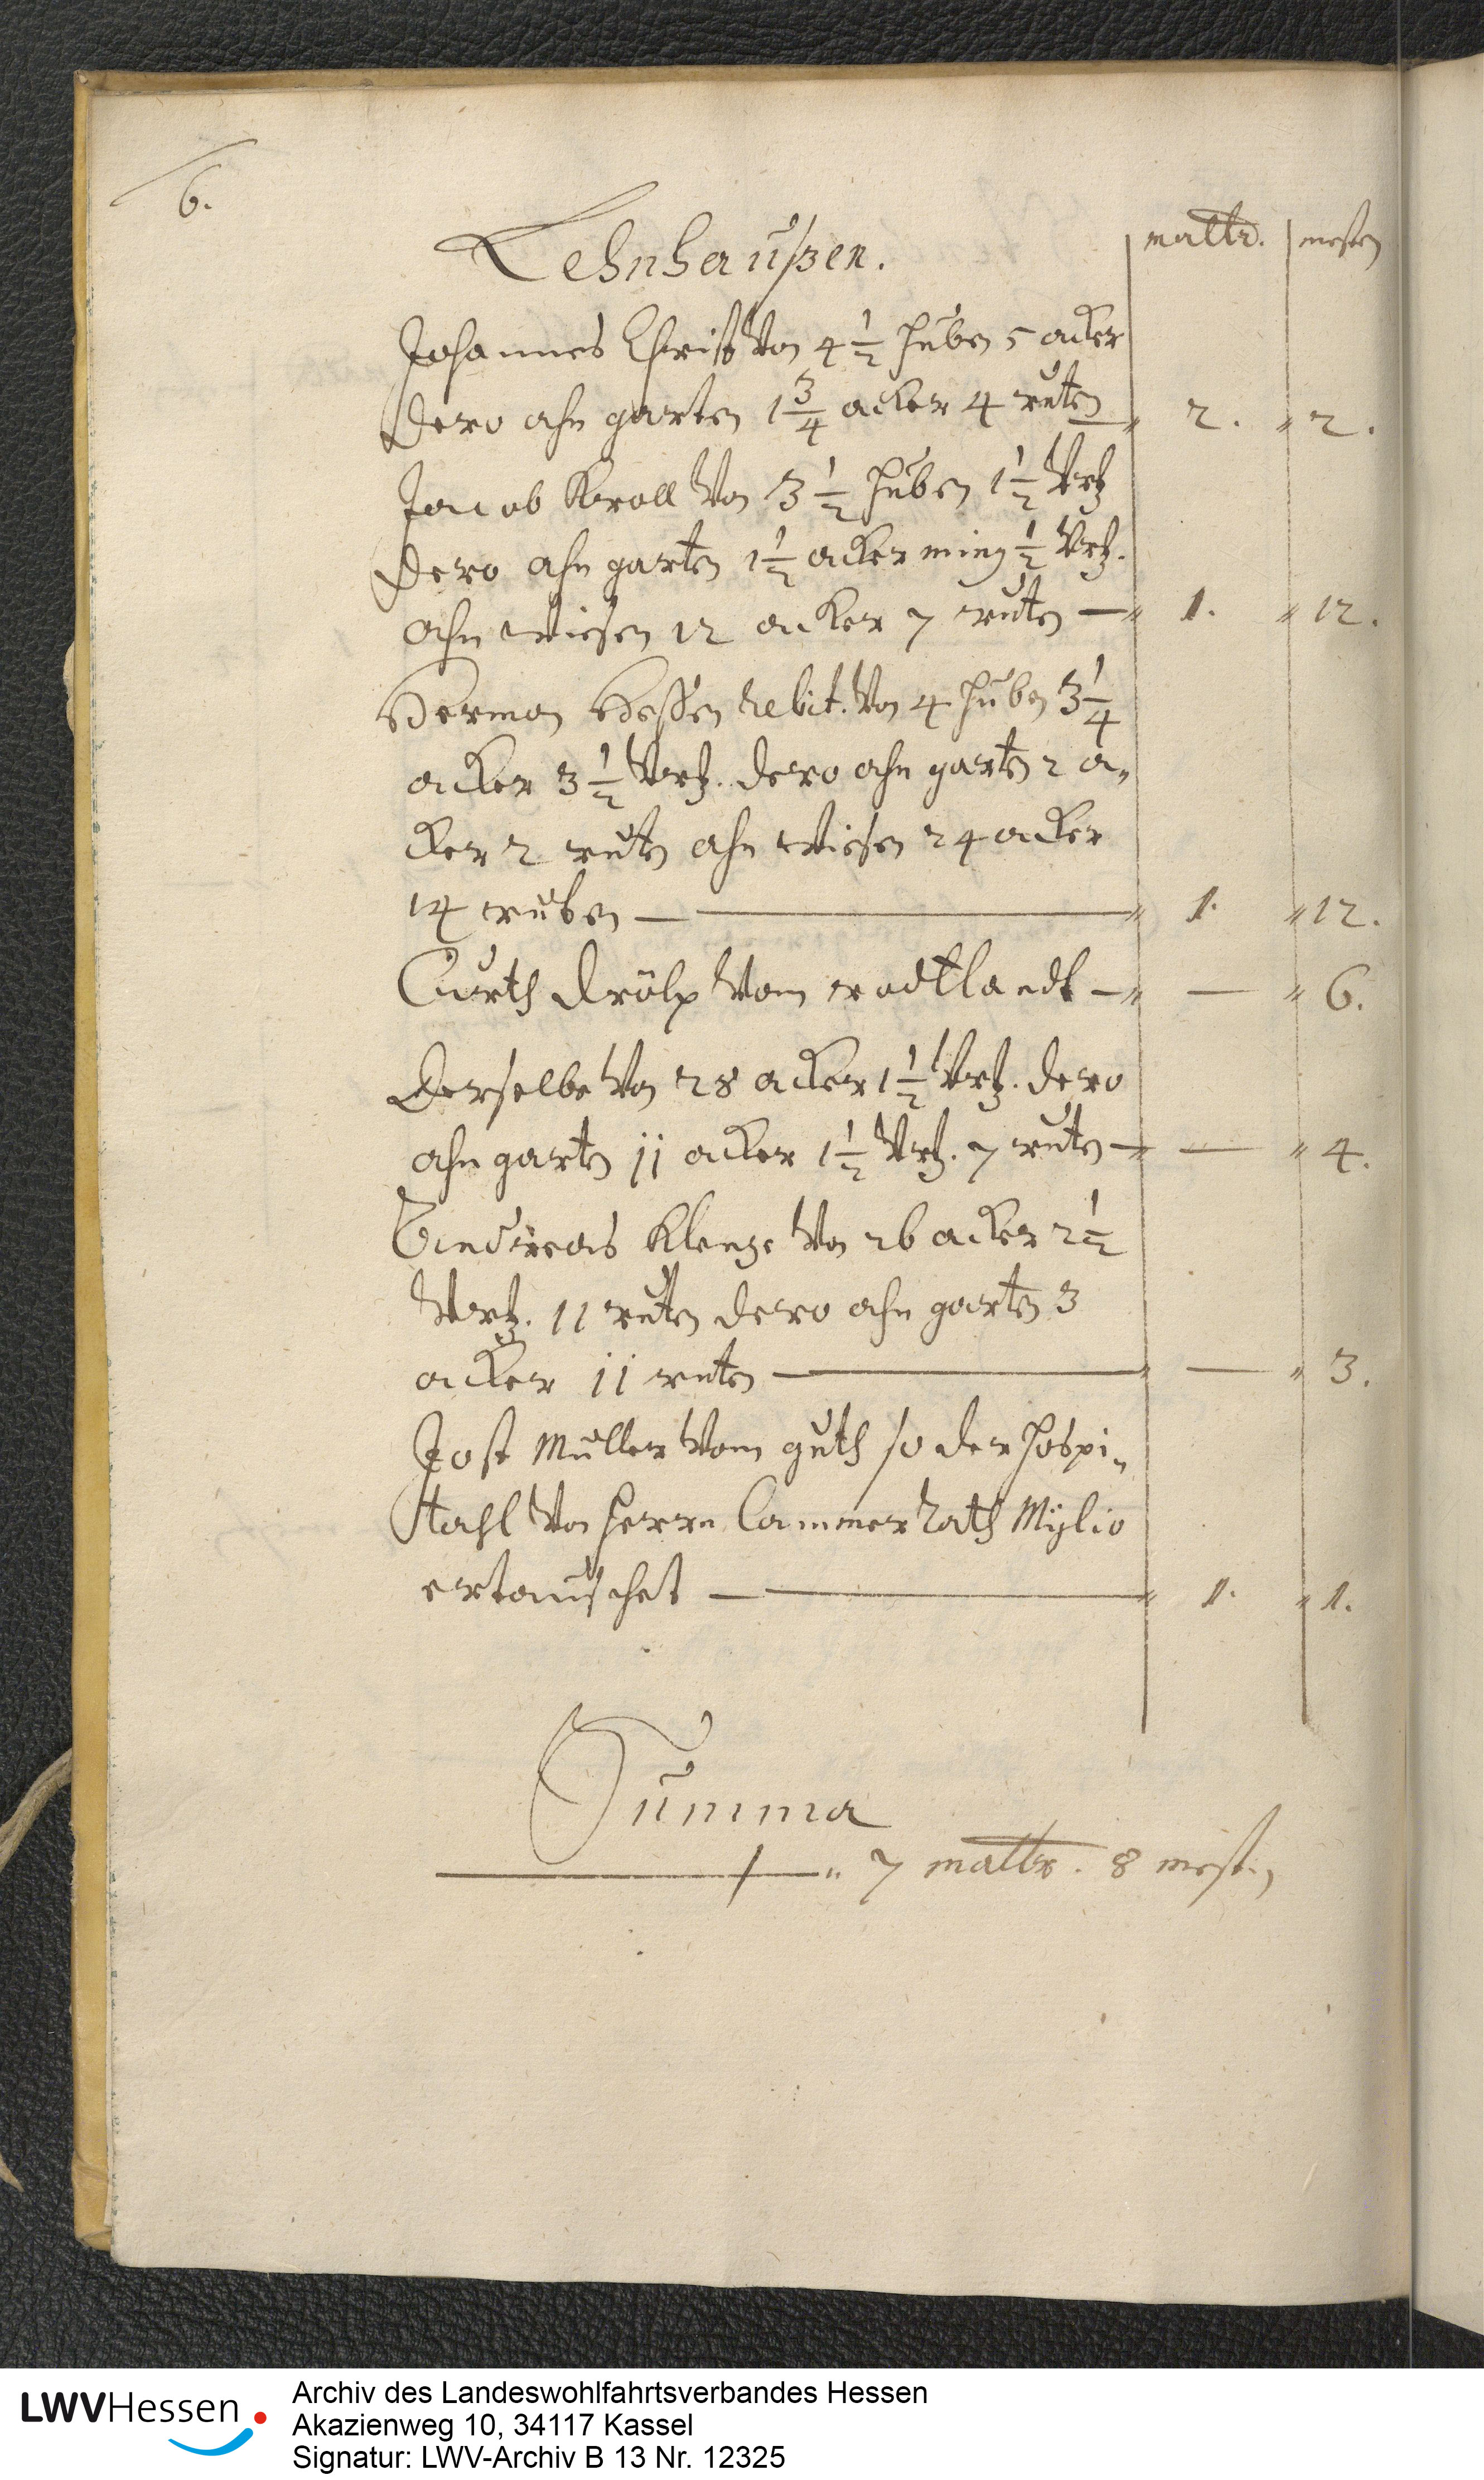 6.
Lehnhaußen.
maltr. mesten
Johannes Christ von 4 1/2 huben 5 acker
dero ahn garten 1 3/4 acker 4 ruten 2. 2.
Jacob Kroll von 3 1/2 huben 1 1/2 Vrtz
dero ahn garten 1 1/2 acker ming 1/2 Vrtz.
ahn wiesen 12 acker 7 ruten 1. 12.
Herman Heßen relict. von 4 huben 3 1/4
acker 3 1/2 Vrtz. dero ahn garten 2 a-
cker 2 ruten ahn wiesen 24 acker
14 ruten 1. 12.
Curth vom rodtlandt — 6.
Derselbe von 28 acker 1 1/2 Vrtz. dero
ahn garten 11 acker 1 1/2 Vrtz. 7 ruten — 4.
Andreas Klenge von 26 acker 2 1/2
Vrtz. 11 ruten dero ahn garten 3
acker 11 ruten — 3.
Jost Müller vom guth so der hospi-
tahl von herrn Cammer Rath Mylio
ertauschet 1. 1.
Summa
7 maltr. 8 mesten
LWVHessen
Archiv des Landeswohlfahrtsverbandes Hessen
Akazienweg 10, 34117 Kassel
Signatur: LWV-Archiv B 13 Nr. 12325